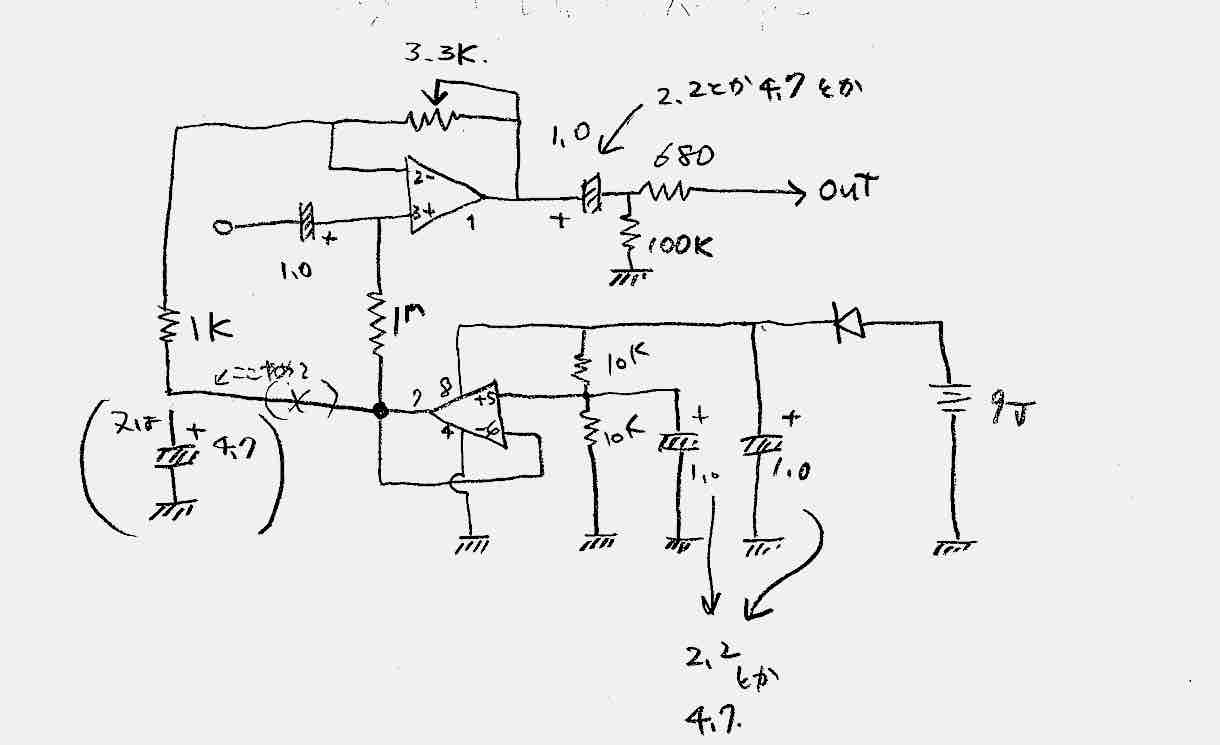 3.3K.
2.2とか4.7とか
1.0
680
OUT
2-
3+
1
+
100K
+
1.0
1K
1M
←ここやめて
(X)
7
8
+5
-6
4
10K
10K
+
1.0
+
1.0
9V
又は
+
4.7
2.2
とか
4.7.